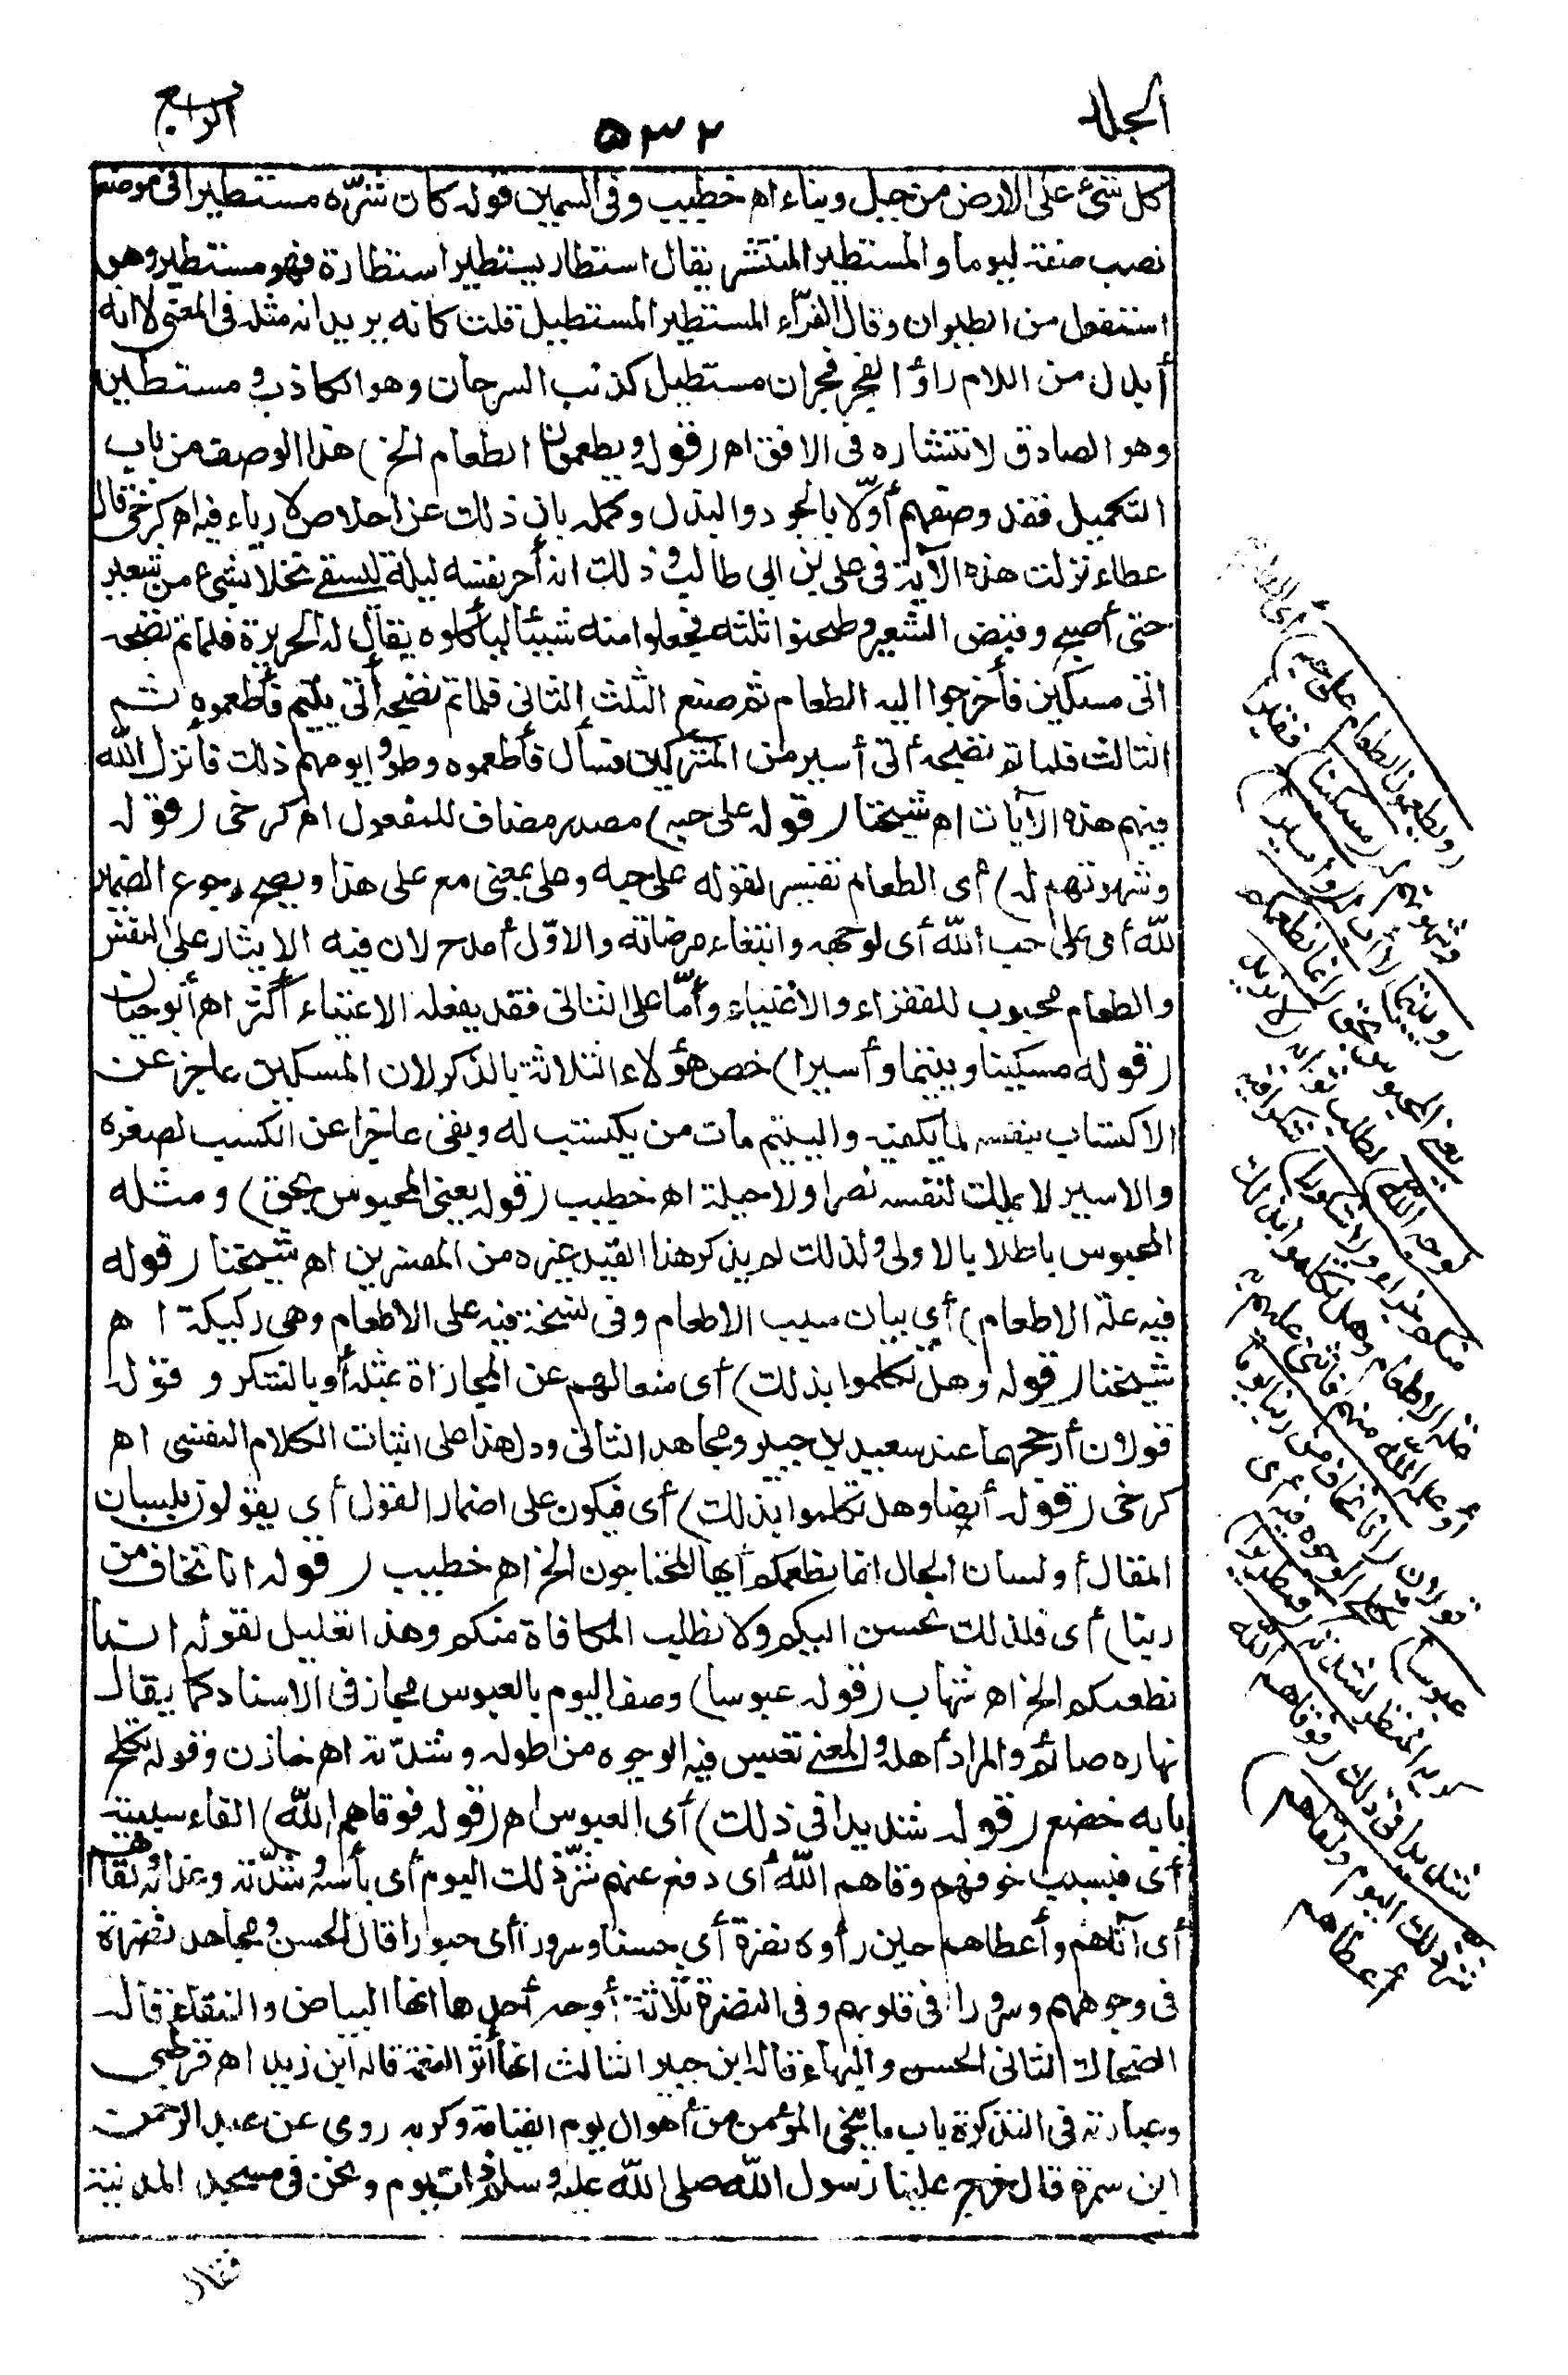 الجلد
٥٣٢
الرابع
كل شئ على الارض من جبل وبناء اھ خطيب وفى السمين قوله كان شرّه مستطيرا فى موضع
نصب صفة ليوما والمستطير المنتشر يقال استطار يستطير استطارة فهو مستطير وهو
استفعل من الطيران وقال الفرّاء المستطير المستطيل قلت كانه يريد انه مثله فى المعنى لا انه
أبدل من اللام راؤ الفجر فجران مستطيل كذنب السرحان وهو الكاذب ومستطير
وهو الصادق لانتشاره فى الافق اھ (قوله ويطعمون الطعام الخ) هذا الوصف من باب
التكميل فقد وصفهم أوّلا بالجود والبذل وكمله بان ذلك عن اخلاص لا رياء فيه اھ كرخى قال
عطاء نزلت هذه الآية فى على بن ابى طالب وذلك انه أجر نفسه ليلة ليسقى نخلا بشئ من شعير
حتى أصبح وقبض الشعير وطحنوا ثلثه فجعلوا منه شيئا ليأكلوه يقال له الحريرة فلما تم نضجه
اتى مسكين فأخرجوا اليه الطعام ثم صنع الثلث الثانى فلما تم نضجه أتى يتيم فأطعموه ثم
الثالث فلما تم نضجه أتى أسير من المشركين فسأل فأطعموه وطووا يومهم ذلك فأنزل الله
فيهم هذه الآيات اھ شيخنا (قوله على حبه) مصدر مضاف للمفعول اھ كرخى (قوله
وشهوتهم له) أى الطعام تفسير لقوله على حبه وعلى بمعنى مع على هذا ويصح رجوع الضمير
لله أى على حب الله أى لوجهه وابتغاء مرضاته والاوّل أمدح لان فيه الايثار على النفس
والطعام محبوب للفقراء والاغنياء وأمّا على الثانى فقد يفعله الاغنياء أكثر اھ أبو حيان
(قوله مسكينا ويتيما وأسيرا) خص هؤلاء الثلاثة بالذكر لان المسكين عاجز عن
الاكتساب بنفسه لما يكفيه واليتيم مات من يكتسب له وبقى عاجزا عن الكسب لصغره
والاسير لا يملك لنفسه نصرا ولا حيلة اھ خطيب (قوله يعنى المحبوس بحق) ومثله
المحبوس باطلا بالاولى ولذلك لم يذكر هذا القيد غيره من المفسرين اھ شيخنا (قوله
فيه علة الاطعام) أى بيان سبب الاطعام وفى نسخة فيه على الاطعام وهى ركيكة اھ
شيخنا (قوله وهل تكلموا بذلك) أى منعا لهم عن المجازاة بمثله أو بالشكر وقوله
قولان أرجحهما عند سعيد بن جبير ومجاهد الثانى ودل هذا على اثبات الكلام النفسى اھ
كرخى (قوله أيضا وهل تكلموا بذلك) أى فيكون على اضمار القول أى يقولون بلسان
المقال أو لسان الحال انما نطعمكم أيها المحتاجون الخ اھ خطيب (قوله انا نخاف من
ربنا) أى فلذلك نحسن اليكم ولا نطلب المكافاة منكم وهذا تعليل لقوله انما
نطعمكم الخ اھ شهاب (قوله عبوسا) وصف اليوم بالعبوس مجاز فى الاسناد كما يقال
نهاره صائم والمراد أهله والمعنى تعبس فيه الوجوه من طوله وشدّته اھ خازن وقوله تكلح
بابه خضع (قوله شديدا فى ذلك) أى العبوس اھ (قوله فوقاهم الله) الفاء سببية
أى فبسبب خوفهم وقاهم الله أى دفع عنهم شرّ ذلك اليوم أى بأسه وشدّته وعذابه ولقاهم
أى آتاهم وأعطاهم حين رأوه نضرة أى حسنا وسرورا أى حبورا قال الحسن ومجاهد نضرة
فى وجوههم وسرورا فى قلوبهم وفى النضرة ثلاثة أوجه أحدها انها البياض والنقاء قاله
الضحاك الثانى الحسن والبهاء قاله ابن جبير الثالث انها أثر النعمة قاله ابن زيد اھ قرطبى
وعبارته فى التذكرة باب ما ينجى المؤمن من أهوال يوم القيامة وكربه روى عن عبد الرحمن
ابن سمرة قال خرج علينا رسول الله صلى الله عليه وسلم ذات يوم ونحن فى مسجد المدينة
فقال
(ويطعمون الطعام على حبه) أى الطعام
وشهوتهم له (مسكينا) فقيرا
(ويتيما) لا أب له (وأسيرا)
يعنى المحبوس بحق (انما نطعمكم
لوجه الله) لطلب ثوابه (لا نريد
منكم جزاء ولا شكورا) شكرا فيه
علة الاطعام وهل تكلموا بذلك
أو علمه الله منهم فأثنى عليهم به
قولان (انا نخاف من ربنا يوما
عبوسا) تكلح الوجوه فيه أى
كريه المنظر لشدته (قمطريرا)
شديدا فى ذلك (فوقاهم الله
شر ذلك اليوم ولقاهم)
أعطاهم